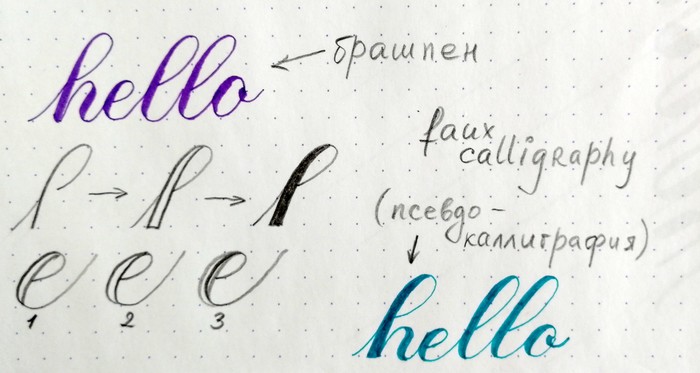 hello
брашпен
faux
calligraphy
(псевдо-
каллиграфия)
l → l → l
e e e
1 2 3
hello